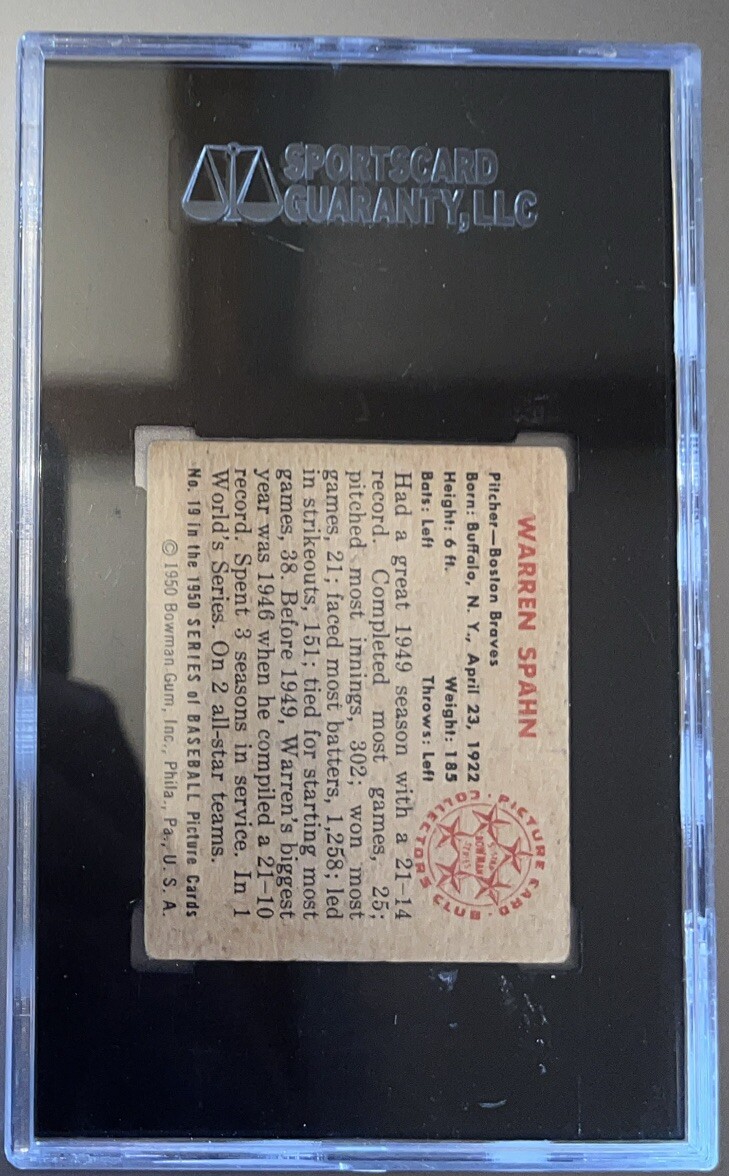 SPORTSCARD
GUARANTY, LLC
WARREN SPAHN
Pitcher—Boston Braves
Born: Buffalo, N. Y., April 23, 1922
Height: 6 ft. Weight: 185
Bats: Left Throws: Left
Had a great 1949 season with a 21-14
record. Completed most games, 25;
pitched most innings, 302; won most
games, 21; faced most batters, 1,258; led
in strikeouts, 151; tied for starting most
games, 38. Before 1949, Warren's biggest
year was 1946 when he compiled a 21-10
record. Spent 3 seasons in service. In 1
World's Series. On 2 all-star teams.
No. 19 in the 1950 SERIES of BASEBALL Picture Cards
© 1950 Bowman Gum, Inc., Phila., Pa., U. S. A.
PICTURE CARD
COLLECTORS CLUB
BOWMAN